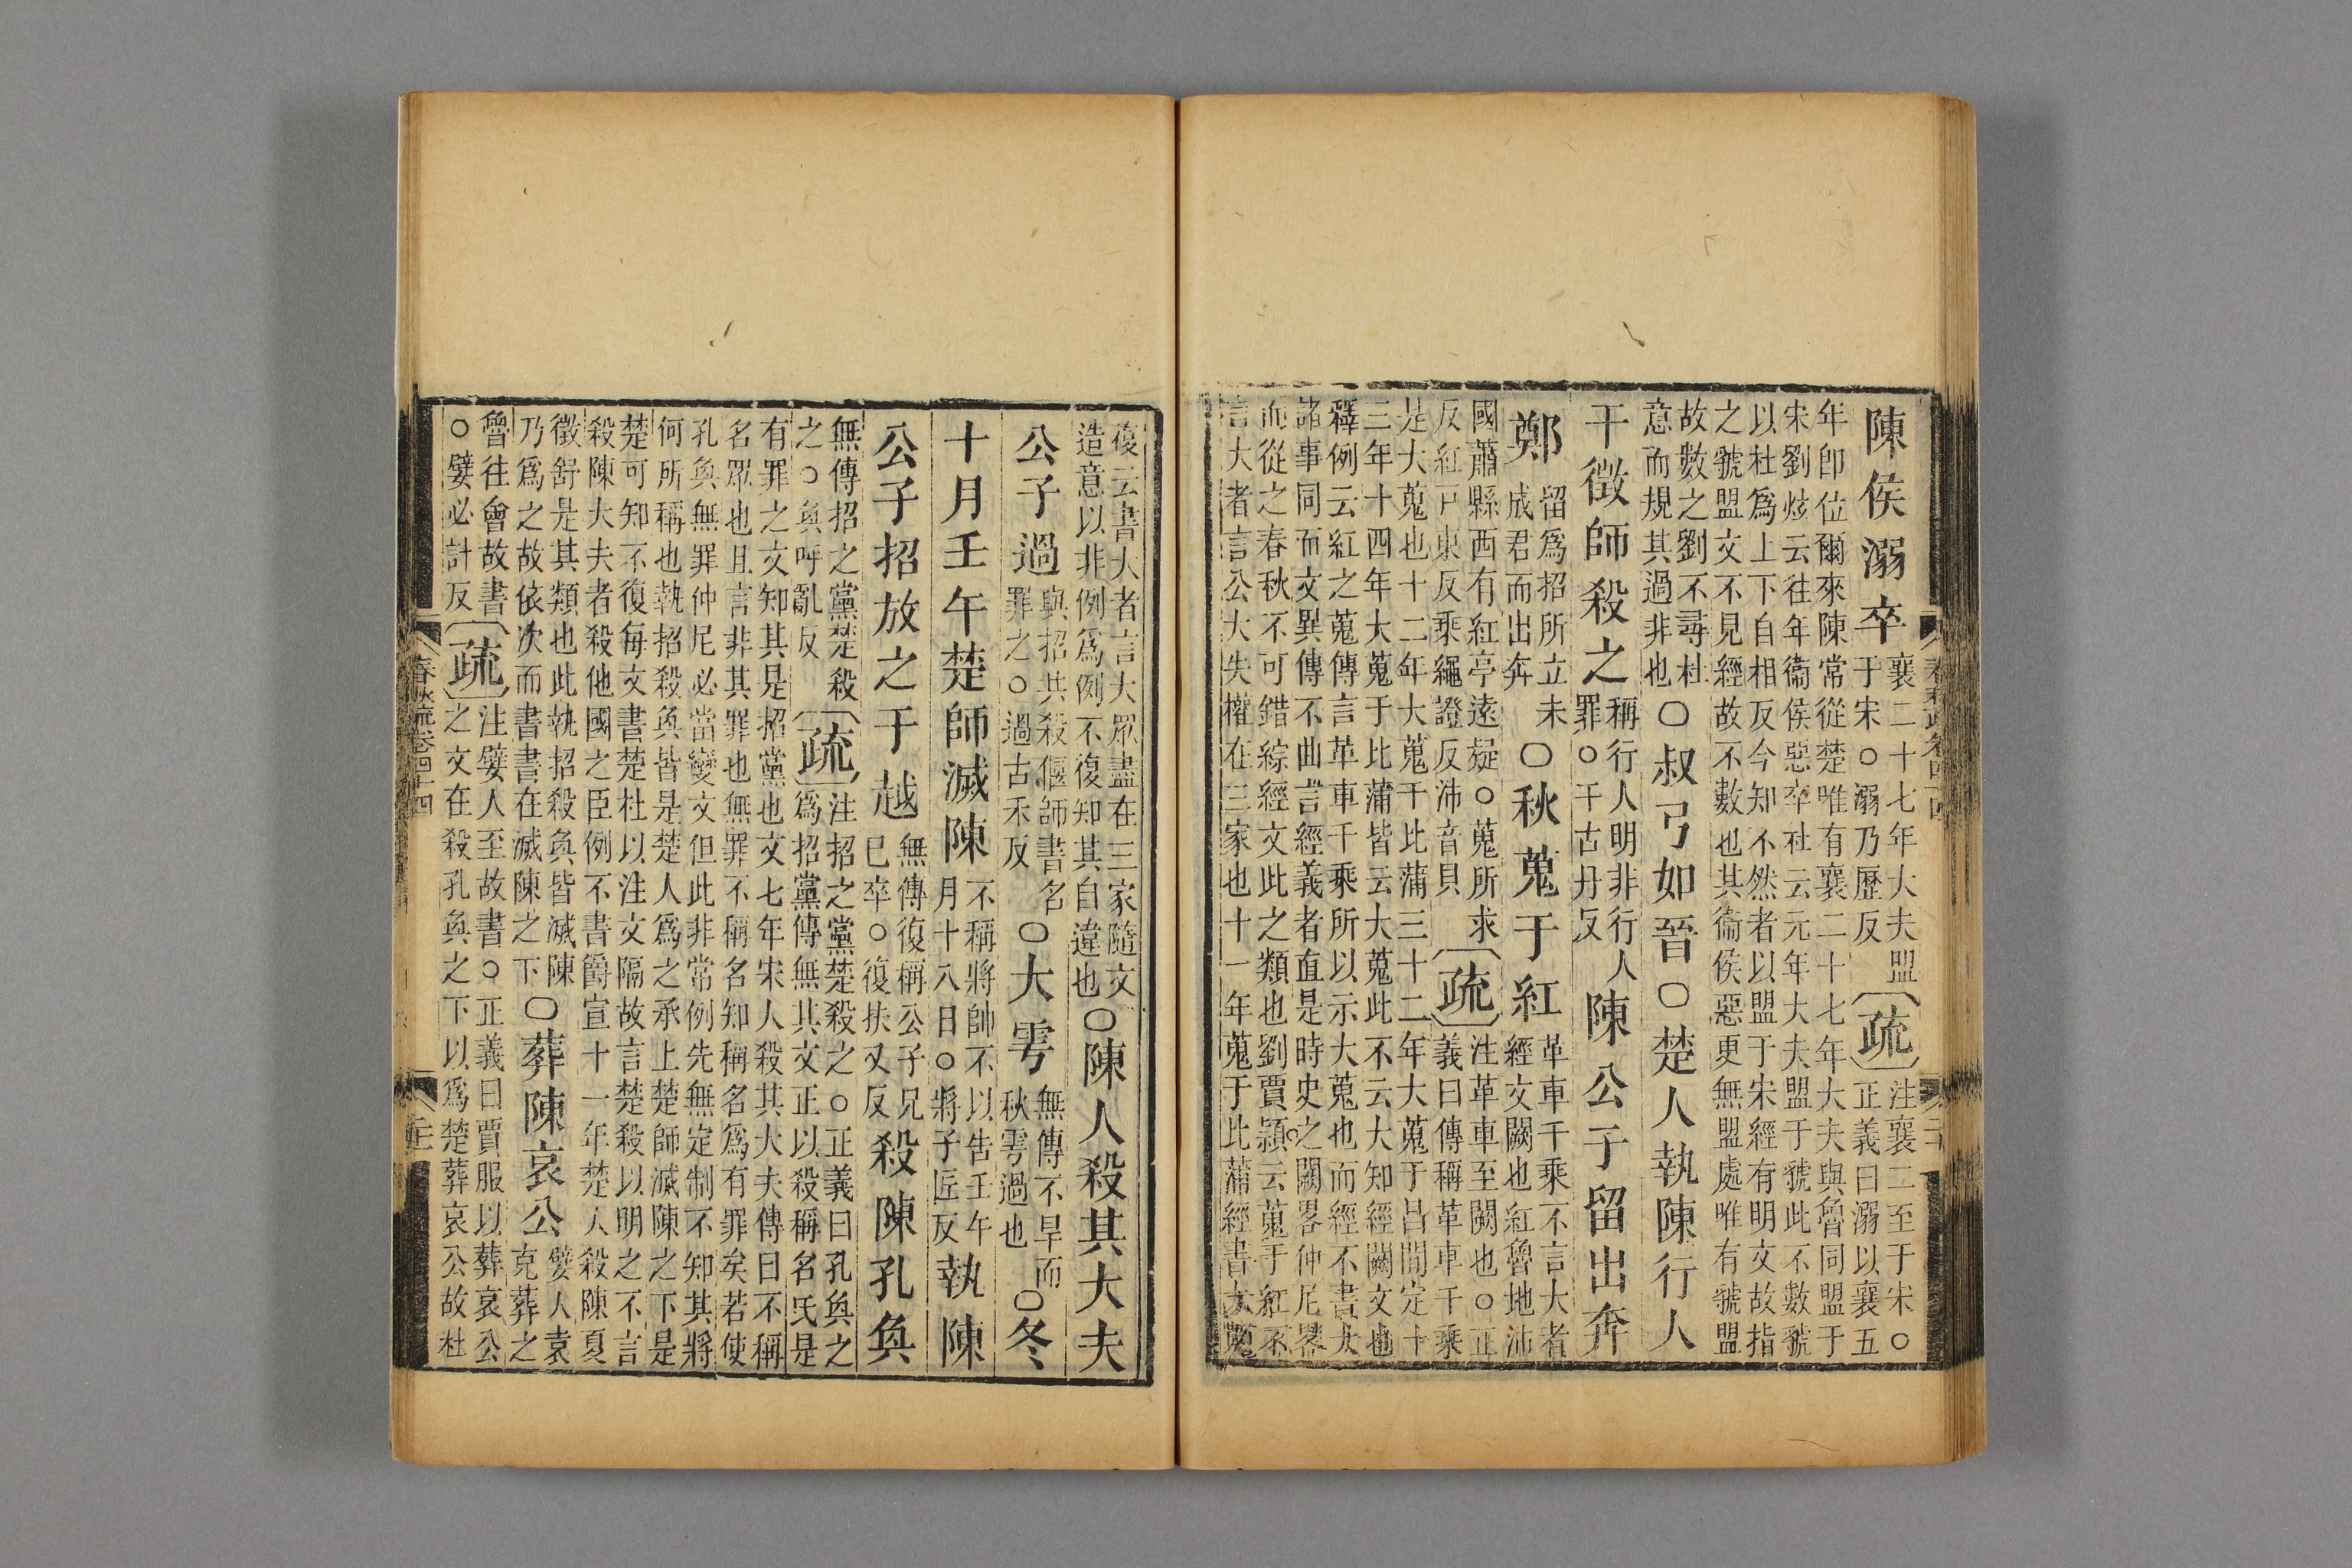 陳侯溺卒襄二十七年大夫盟于宋○溺乃歷反疏注襄二至于宋○正義曰溺以襄五
年卽位爾來陳常從楚唯有襄二十七年大夫與魯同盟于
宋劉炫云往年衞侯惡卒社云元年大夫盟于虢此不數虢
以杜爲上下自相反今知不然者以盟于宋經有明文故指
之虢盟文不見經故不數也其衞侯惡更無盟處唯有虢盟
故數之劉不尋杜
意而規其過非也○叔弓如晉○楚人執陳行人
干徵師殺之稱行人明非行人罪○干古丹反陳公子留出奔
鄭留爲招所立未成君而出奔○秋蒐于紅革車千乘不言大者經文闕也紅魯地沛
國蕭縣西有紅亭遠疑○蒐所求
反紅戸東反乘繩證反沛音貝疏注革車至闕也○正義曰傳稱革車千乘
是大蒐也十二年大蒐于比蒲三十二年大蒐于昌間定十
三年十四年大蒐于比蒲皆云大蒐此不云大知經闕文也
釋例云紅之蒐傳言革車千乘所以示大蒐也而經不書大
諸事同而文異傳不曲言經義者直是時史之闕畧仲尼畧
而從之春秋不可錯綜經文此之類也劉賈潁云蒐于紅不
言大者言公大失權在三家也十一年蒐于比蒲經書大蒐
復云書大者言大眾盡在三家隨文
造意以非例爲例不復知其自違也○陳人殺其大夫
公子過與招共殺偃師書名罪之○過古禾反○大雩無傳不旱而秋雩過也○冬
十月壬午楚師滅陳不稱將帥不以告壬午月十八日○將子匠反執陳
公子招放之于越無傳復稱公子兄已卒○復扶又反殺陳孔奐
無傳招之黨楚殺之○奐呼亂反疏注招之黨楚殺之○正義曰孔奐之
爲招黨傳無其文正以殺稱名氏是
有罪之文知其是招黨也文七年宋人殺其大夫傳曰不稱
名眾也且言非其罪也無罪不稱名知稱名爲有罪矣若使
孔奐無罪仲尼必當變文但此非常例先無定制不知其將
何所稱也執招殺奐皆是楚人爲之承上楚師滅陳之下是
楚可知不復每文書楚杜以注文隔故言楚殺以明之不言
殺陳大夫者殺他國之臣例不書爵宣十一年楚人殺陳夏
徵舒是其類也此執招殺奐皆滅陳
乃爲之故依次而書書在滅陳之下○葬陳哀公嬖人袁克葬之
魯往會故書
○嬖必計反疏注嬖人至故書○正義曰賈服以葬哀公
之文在殺孔奐之下以爲楚葬哀公故杜
春秋疏卷四十四